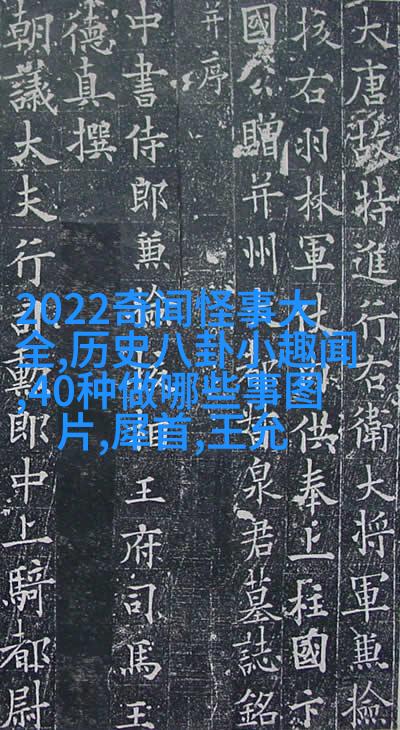 大唐故特進行右衛大將軍兼撿
挍右羽林軍仗供奉上柱國卞
國公贈并州都督泉君墓誌銘
并序
中書侍郎兼撿挍相王府司馬王
德真撰
朝議大夫行司勳郎中上騎都尉
2022奇闻怪事大
全,历史八卦小趣闻
,40种做哪些事图
片,犀首,王允